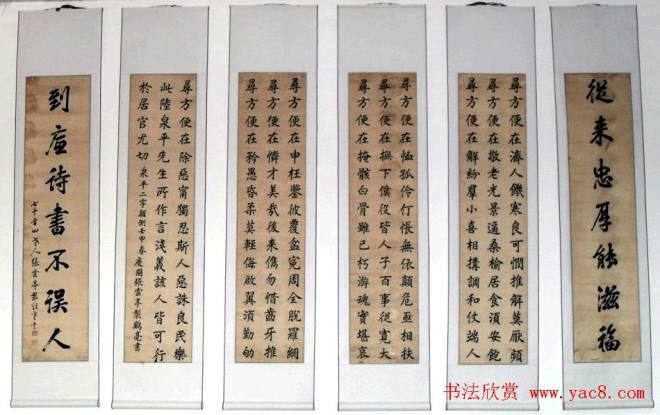 從来忠厚能滋福
尋方便在濟人饑寒良可憫推解莫厭頻
尋方便在敬老光景逼桑榆居食須安飽
尋方便在解紛羣小喜相搆調和仗端人
尋方便在恤孤伶仃悵無依顛危亟相扶
尋方便在撫下僕役皆人子百事從寬大
尋方便在掩骼白骨雖已朽游魂實堪哀
尋方便在申枉鑒彼覆盆寃周全脫羅網
尋方便在憐才美哉後来儁勿惜齒牙推
尋方便在矜愚昏柔莫輕侮啟翼須勤劬
尋方便在除惡甯獨忍斯人惡誅良民樂
此陸泉平先生所作言淺義該人皆可行
於居官尤切 泉平二字顛倒壬申春慶圃張雲亭製鶴亮書
到處詩書不誤人
張雲亭
书法欣赏 www.yac8.com